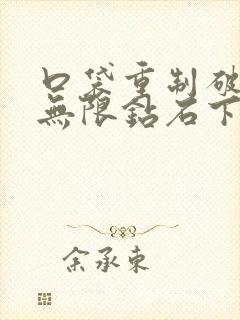 口袋重制破
無限鉆石下
余承東